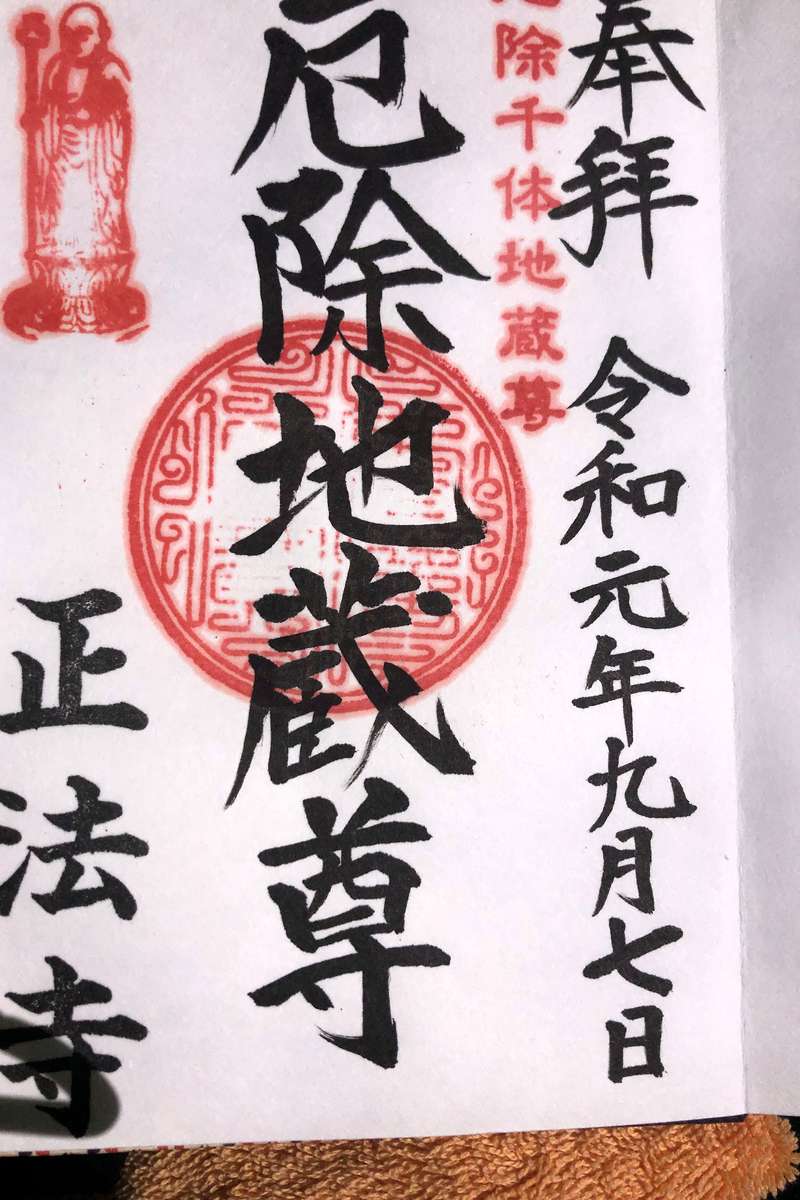 奉拝 令和元年九月七日
厄除千体地蔵尊
厄除地蔵尊
正法寺